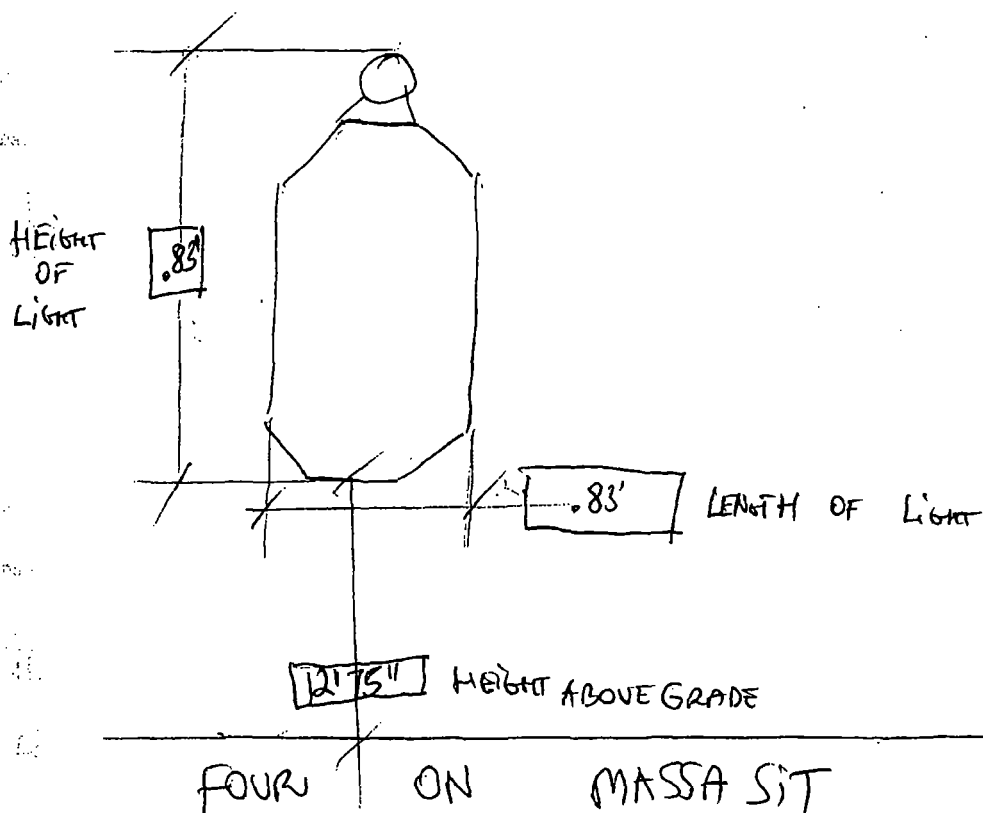 HEIGHT
OF
LIGHT
.83'
.83' LENGTH OF LIGHT
12'75" HEIGHT ABOVE GRADE
FOUR ON MASSA SIT